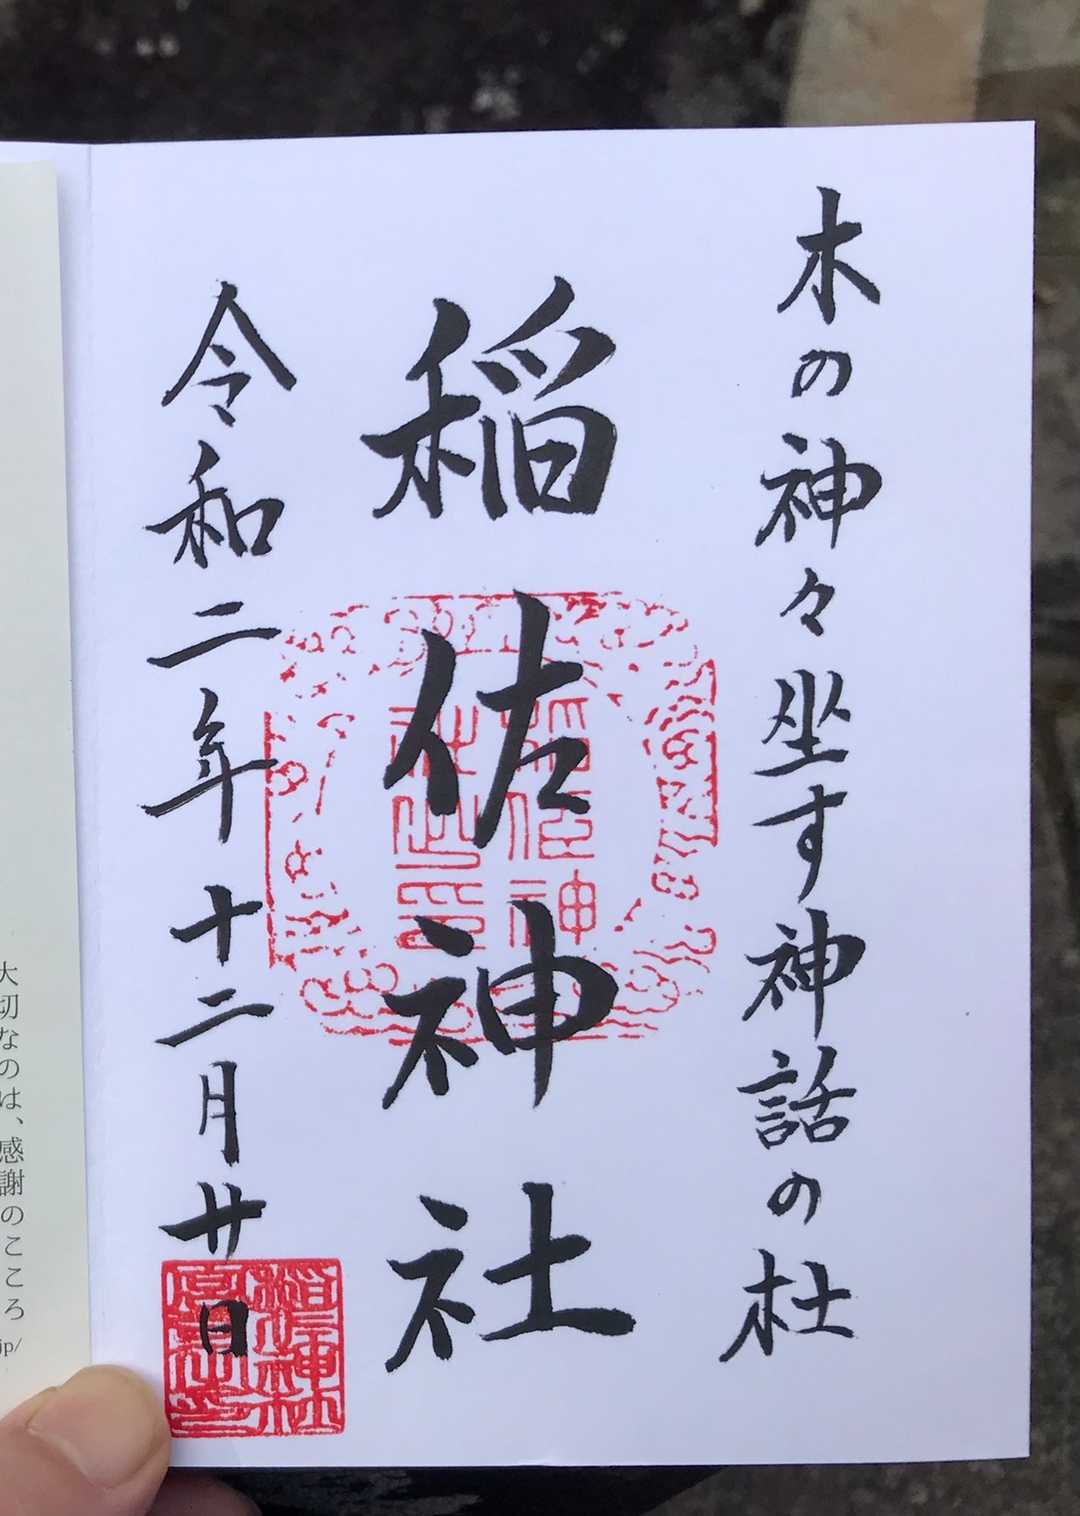 木の神々坐す神話の杜
稲佐神社
令和二年十二月廿日
大切なのは、感謝のこころ
jp/